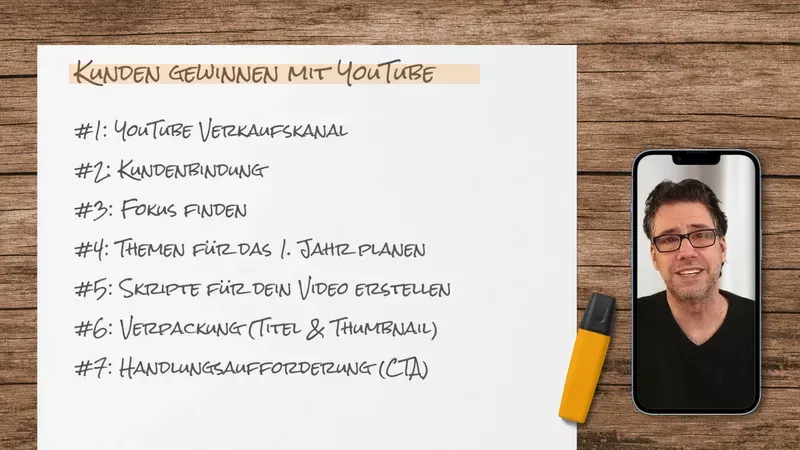 Kunden gewinnen mit YouTube
#1: YouTube Verkaufskanal
#2: Kundenbindung
#3: Fokus finden
#4: Themen für das 1. Jahr planen
#5: Skripte für dein Video erstellen
#6: Verpackung (Titel & Thumbnail)
#7: Handlungsaufforderung (CTA)